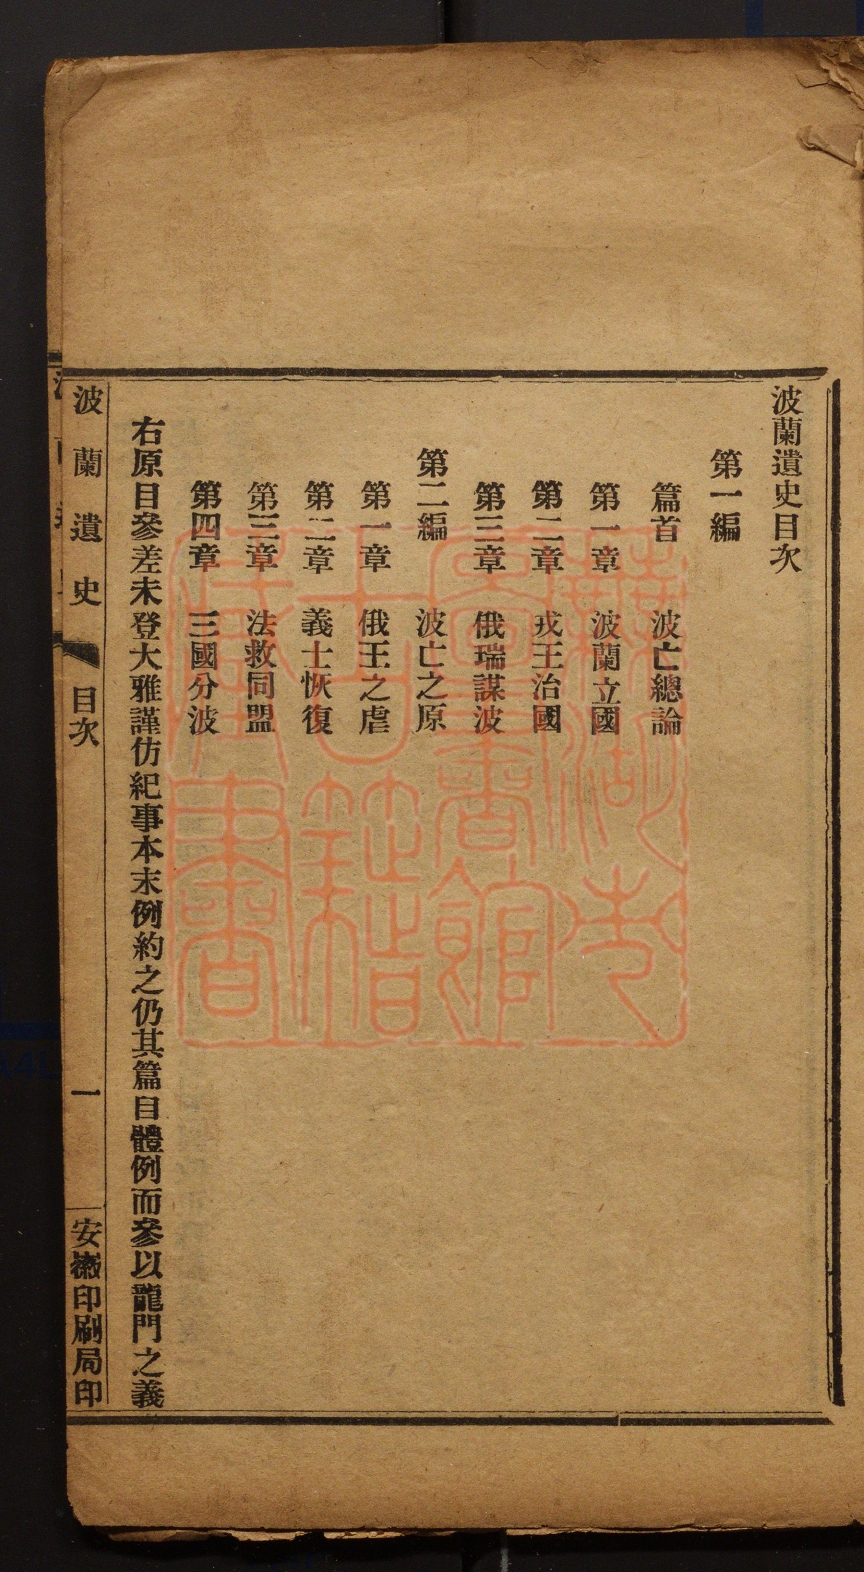 波蘭遺史目次
第一編
篇首 波亡總論
第一章 波蘭立國
第二章 戎王治國
第三章 俄瑞謀波
第二編 波亡之原
第一章 俄王之虐
第二章 義士恢復
第三章 法救同盟
第四章 三國分波
右原目參差未登大雅謹仿紀事本末例約之仍其篇目體例而參以龍門之義
波蘭遺史 目次 一 安徽印刷局印
蕪湖市圖書館古籍藏書